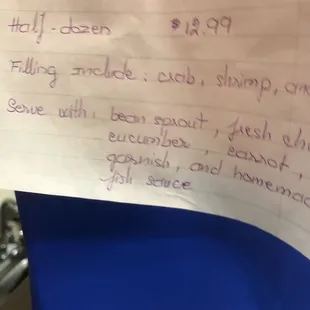 Half-dozen $12.99
Filling Include: crab, shrimp, an
Serve with: bean sprout, fresh ch
cucumber, carrot,
garnish, and homemad
fish sauce